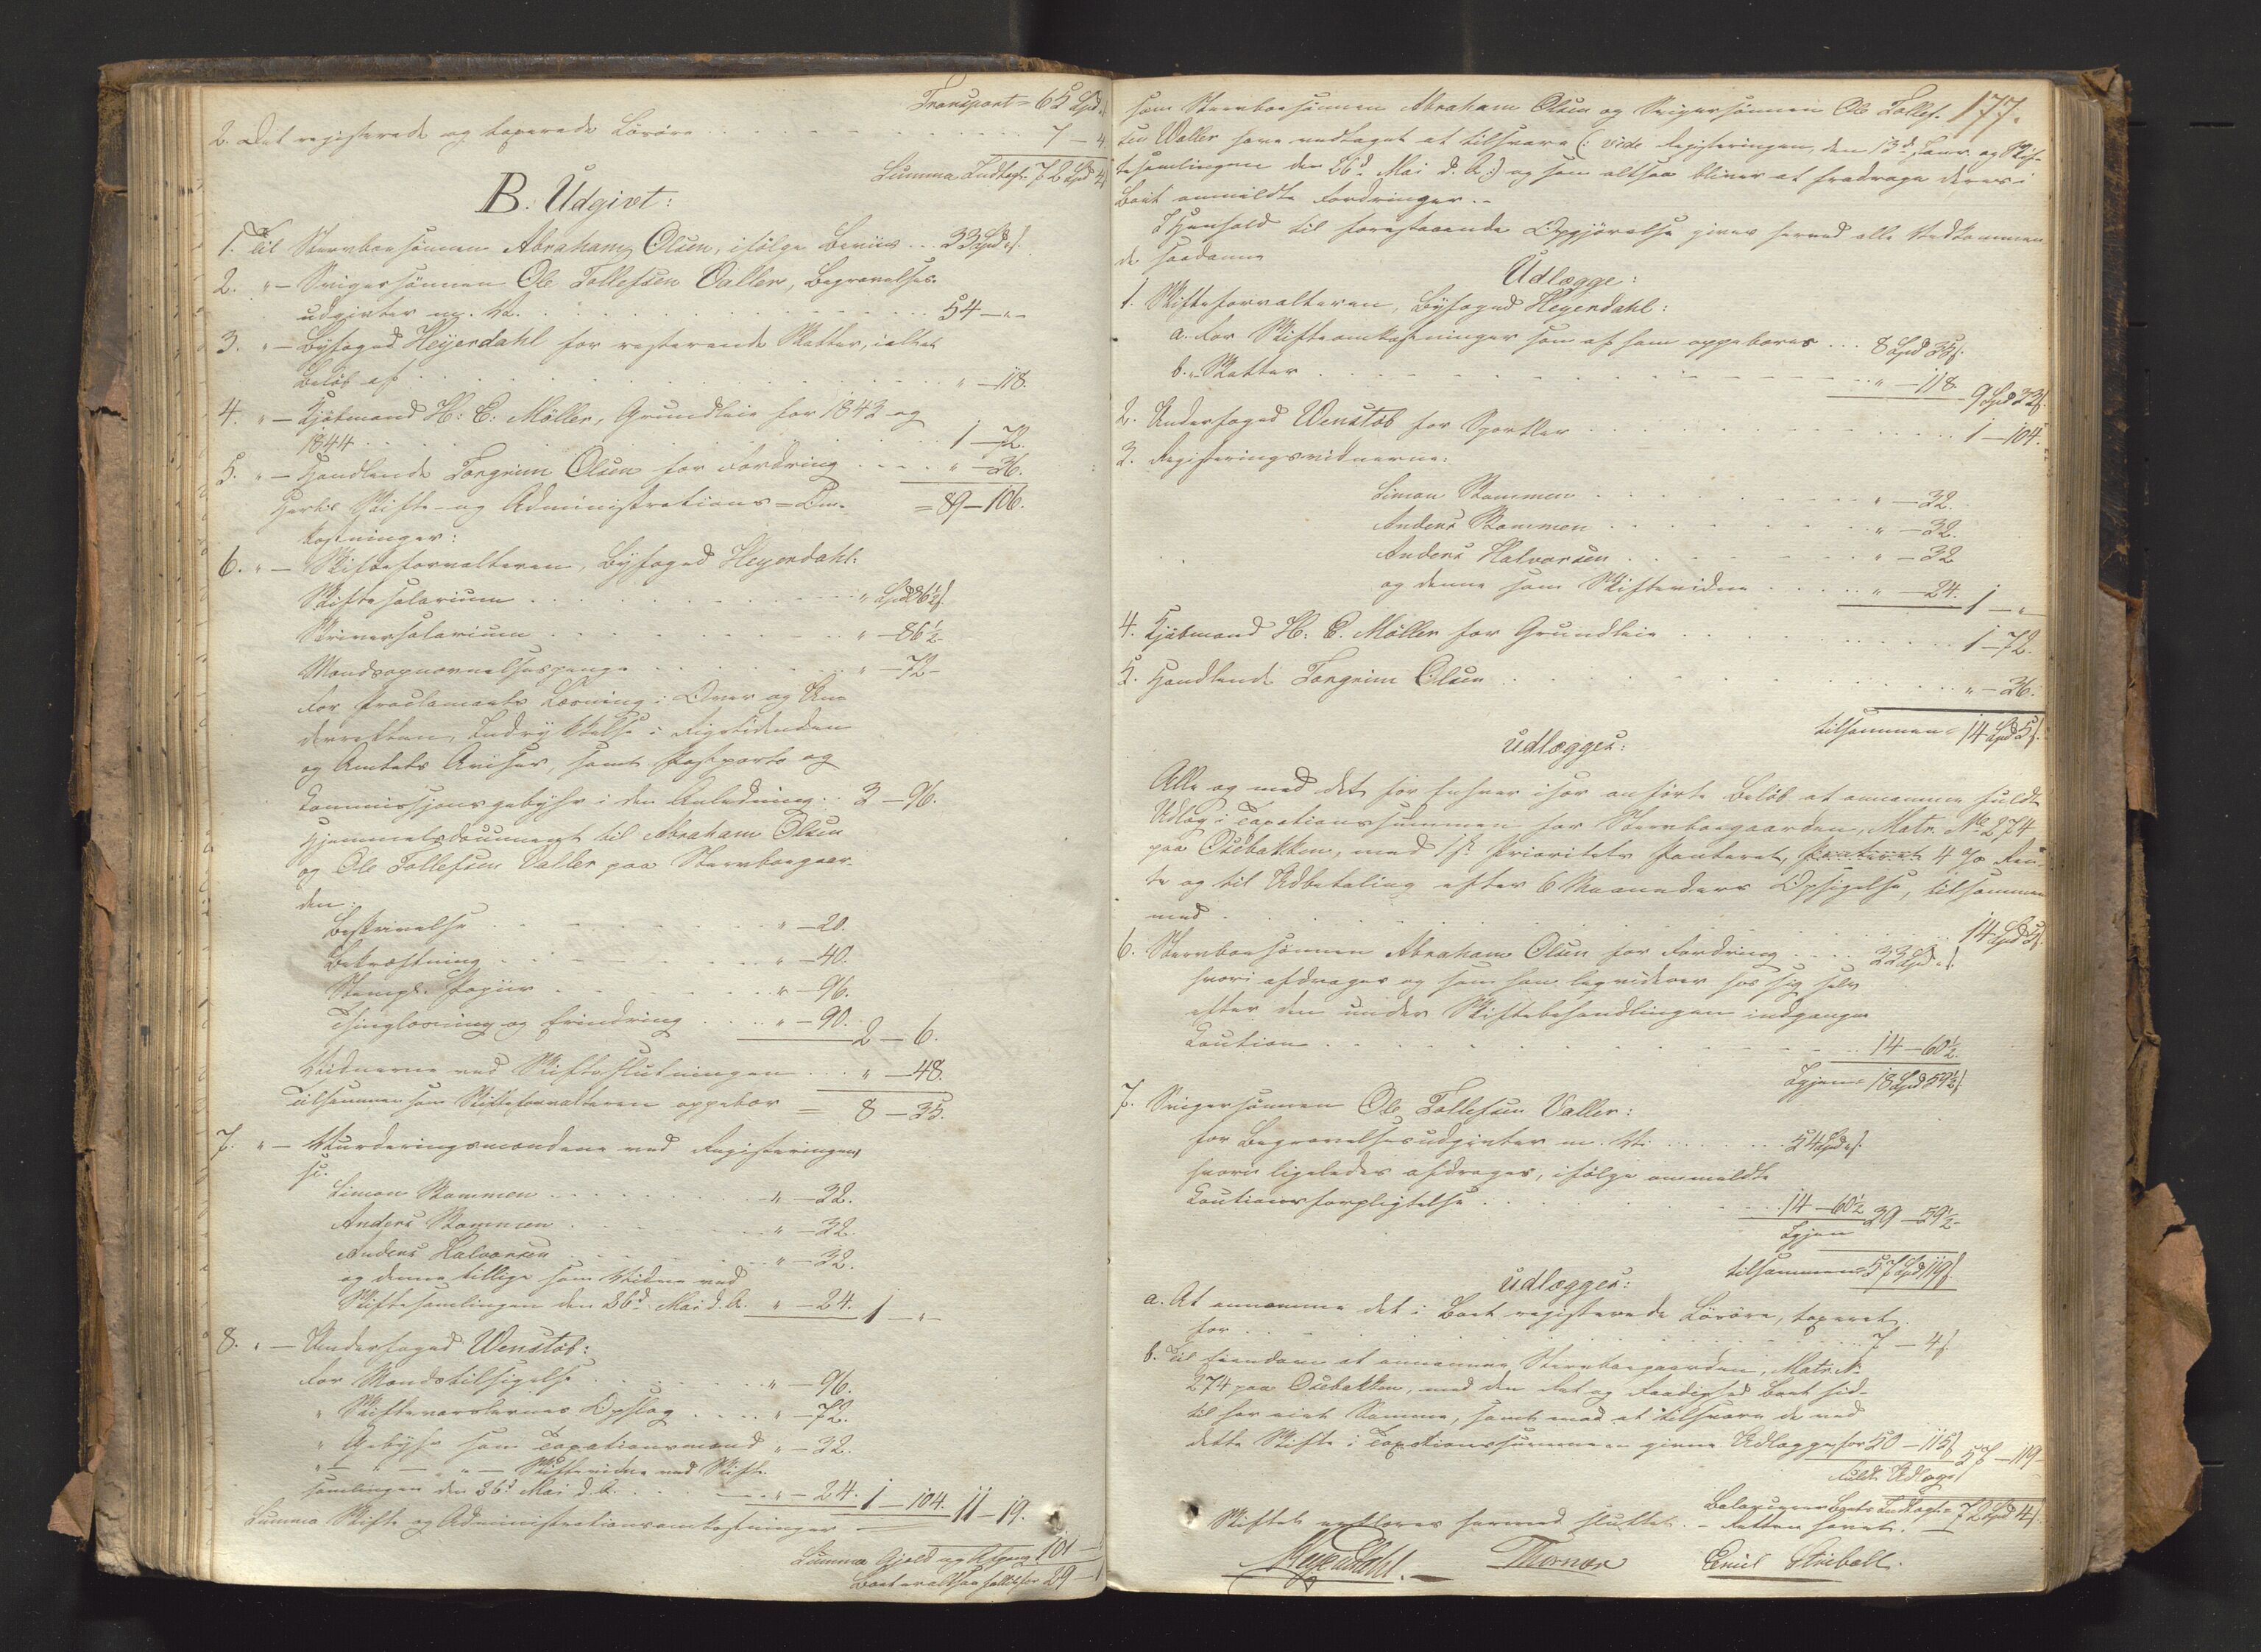 Transport = 65 Spd "
2. Det registerede og taxerede Løsøre . . . 7 – 4.
Summa Indtægt = 72 Spd 4 ß
B. Udgivt:
1. Til Stervboesønnen Abraham Olsen, ifølge Beviis . . . 33 Spd " ß.
2. " – Svigersønnen Ole Tollefsen Valler, Begravelses-
udgivter m. V. . . . 54 – " –
3. " – Byfoged Heyerdahl for resterende Skatter, ialt et
Beløb af . . . " – 118.
4. " – Kjøbmand H: C: Møller, Grundleie for 1843 og
1844 . . . 1 – 72.
5. " – Handlende Torgrim Olsen for Fordring . . . " – 36.
= 89 – 106.
Hertil Skifte- og Administrations-Om-
kostninger:
6. " – Skifteforvalteren, Byfoged Heyerdahl:
Skiftesalarium . . . " Spd 86½ ß.
Skriversalarium . . . " – 86½
Mandsopnævnelsespenge . . . " – 72 –
For Proclamaets Læsning i Over og Un-
derretten, Indrykkelse i Rigstidenden
og Amtets Aviser, samt Postporto og
Commissionsgebyhr i den Anledning . . 3 – 96.
Hjemmelsdocument til Abraham Olsen
og Ole Tollefsen Valler paa Stervboegaar-
den:
Beskrivelse . . . " – 20.
Bekræftning . . . " – 40.
Stempl. Papiir . . . " – 96.
Thinglæsning og Erindring . . . " – 90. 2 – 6.
Vidnerne ved Skifteslutningen . . . " – 48.
Tilsammen som Skifteforvalteren oppebær = 8 – 35.
7. " – Vurderingsmændene ved Registeringen,
sc.
Simon Stammen . . . " – 32.
Anders Stammen . . . " – 32.
Anders Halvorsen . . . " – 32.
og denne tillige som Vidne ved
Skiftesamlingen den 26d Mai d. A. " – 24. 1 – " –
8. " – Underfoged Wenstøb:
For Mændstilsigelse . . . " – 96.
" Skiftevarslernes Opslag . . . " – 72.
" Gebyhr som Taxationsmand " – 32.
" – " – " – Skiftevidne ved Skifte-
samlingen den 26d Mai d. A. . . . " – 24. 1 – 104. 11 – 19.
Summa Skifte og Administrationsomkostninger
Summa Gjeld og Afgang 101 –
Boet er altsaa fallit for 29 – 1
177.
som Stervboesønnen Abraham Olsen og Svigersønnen Ole Tollef-
sen Waller have vedtaget at tilsvare (: vide Registeringen den 13d Janr. og Skif-
tesamlingen den 26d Mai d. A.:) og som altsaa bliver at fradrage deres i
Boet anmeldte Fordringer. –
I Henhold til forestaaende Opgjørelse gives herved alle Vedkommen-
de saadanne
Udlægge:
1. Skifteforvalteren, Byfoged Heyerdahl:
a. For Skifteomkostninger som af ham oppebæres . . . 8 Spd 35 ß.
b. " Skatter . . . " – 118. 9 Spd 33 ß.
2. Underfoged Wenstøb for Sportler . . . 1 – 104.
3. Registeringsvidnerne:
Simon Stammen . . . " – 32.
Anders Stammen . . . " – 32.
Anders Halvorsen . . . " – 32
og denne som Skiftevidne . . . " – 24. 1 – " –
4. Kjøbmand H: C. Møller for Grundleie . . . 1 – 72.
5. Handlende Torgrim Olsen . . . " – 36.
tilsammen = 14 Spd 5 ß.
udlægges:
Alle og med det for Enhver især anførte Beløb at annamme fuldt
Udlæg i Taxationssummen for Stervboegaarden, Matr. No 274
paa Osebakken, med 1ste Prioritets Panteret, 4 % Ren-
te og til Udbetaling efter 6 Maaneders Opsigelse, tilsammen
med . . . 14 Spd 5 ß.
6. Stervboesønnen Abraham Olsen for Fordring . . . 33 Spd " ß.
hvori afdrages og som han liqviderer hos sig selv
efter den under Skiftebehandlingen indgangne
Caution . . . 14 – 60½.
Igjen = 18 Spd 59½ ß.
7. Svigersønnen Ole Tollefsen Valler:
for Begravelsesudgivter m. V. . . . 54 Spd " ß.
hvori ligeledes afdrages, ifølge ommeldte
Cautionsforpligtelse . . . 14 – 60½
Igjen 39 – 59½ –
tilsammen = 57 Spd 119 ß.
udlægges:
a. At annamme det i Boet registerede Løsøre, taxeret
for . . . 7 – 4 ß.
b. Til Eiendom at annamme Stervboegaarden, Matr. No
274 paa Osebakken, med den Ret og Raadighed Boet hid-
til har eiet Samme, samt mod at tilsvare de ved
dette Skifte i Taxationssummen givne Udlægge for 50 – 115 ß 57 – 119 –
fuldt Udlæg.
Balancerer Boets Indtægt = 72 Spd 4 ß.
Skiftet erklæres hermed sluttet. – Retten hævet.
Heyerdahl. – Thornæs